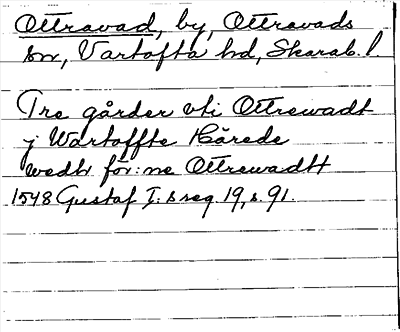 Ottravad, by, Ottravads
sn, Vartofta hd, Skarab. l.
Tre gårder vti Ottrewadt
j Wartoffte Hårede
wedhr för:ne Ottrewadtt
1548 Gustaf I:s reg. 19, s. 91.